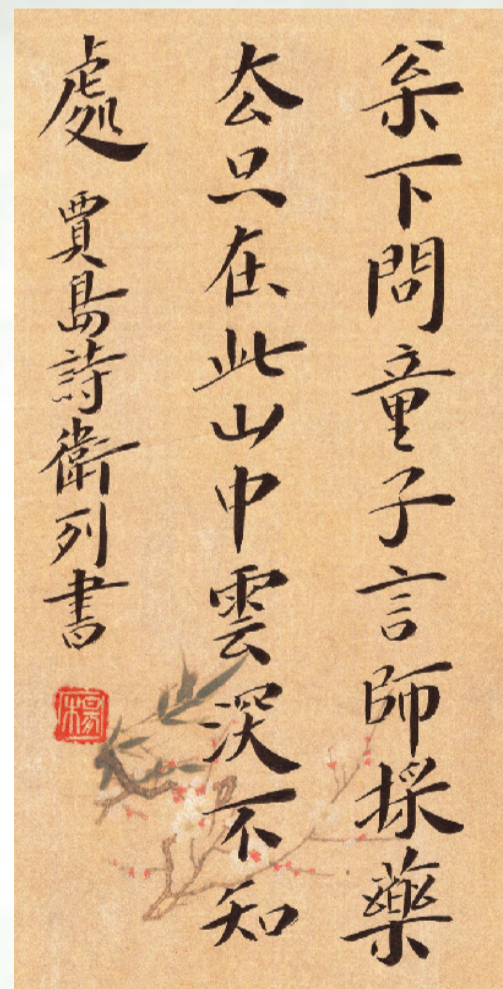 枩下問童子言師採藥
厺只在此山中雲深不知
處 賈島詩衛列書
楊